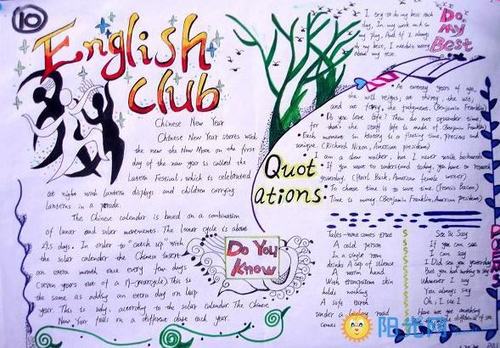 10
English
club
Chinese New Year
Chinese New Year starts with
the new the New Moon on the first
day of the new year is called the
Lantern Festival, which is celebrated
at night with lantern displays and children carrying
lanterns in a parade.
The Chinese calendar is based on a combination
of lunar and solar movements. The lunar cycle is about
29.5 days. In order to "catch up" with
the solar calendar the Chinese insert
an extra month once every few days
This is
the same as adding an extra day on leap
year. This is why, according to the solar calendar, The Chinese
New Year falls on a different date each year.
Do You
Know
I try to do my best each
day, In my work and in
my play, And if I always
do my best, I needn't worry
about my
Do
My
Best
Quot
ations:
twenty years of age,
the will reigns, at thirty, the wit;
and at forty, the judgment. (Benjamin Franklin)
Do you love life? Then do not squander time,
for that's the stuff life is made of (Benjamin Franklin)
Each moment in history is a fleeting time, precious and
unique. (Richard Nixon, American president)
I am a slow walker, but I never walk backwards
If you want to understand today, you have to research
yesterday. (Pearl Buck, American female writer)
To choose time is to save time. (Francis Bacon)
Time is money (Benjamin Franklin, American president)
A cold person
In a single room
Needs A cup of silence
A warm hand
With
holds nothing
A safe
under a
comes
See & Say
If you can see
I can say
I
But you had nothing to say
Whenever I say
You always say
Oh, I see I
阳光网